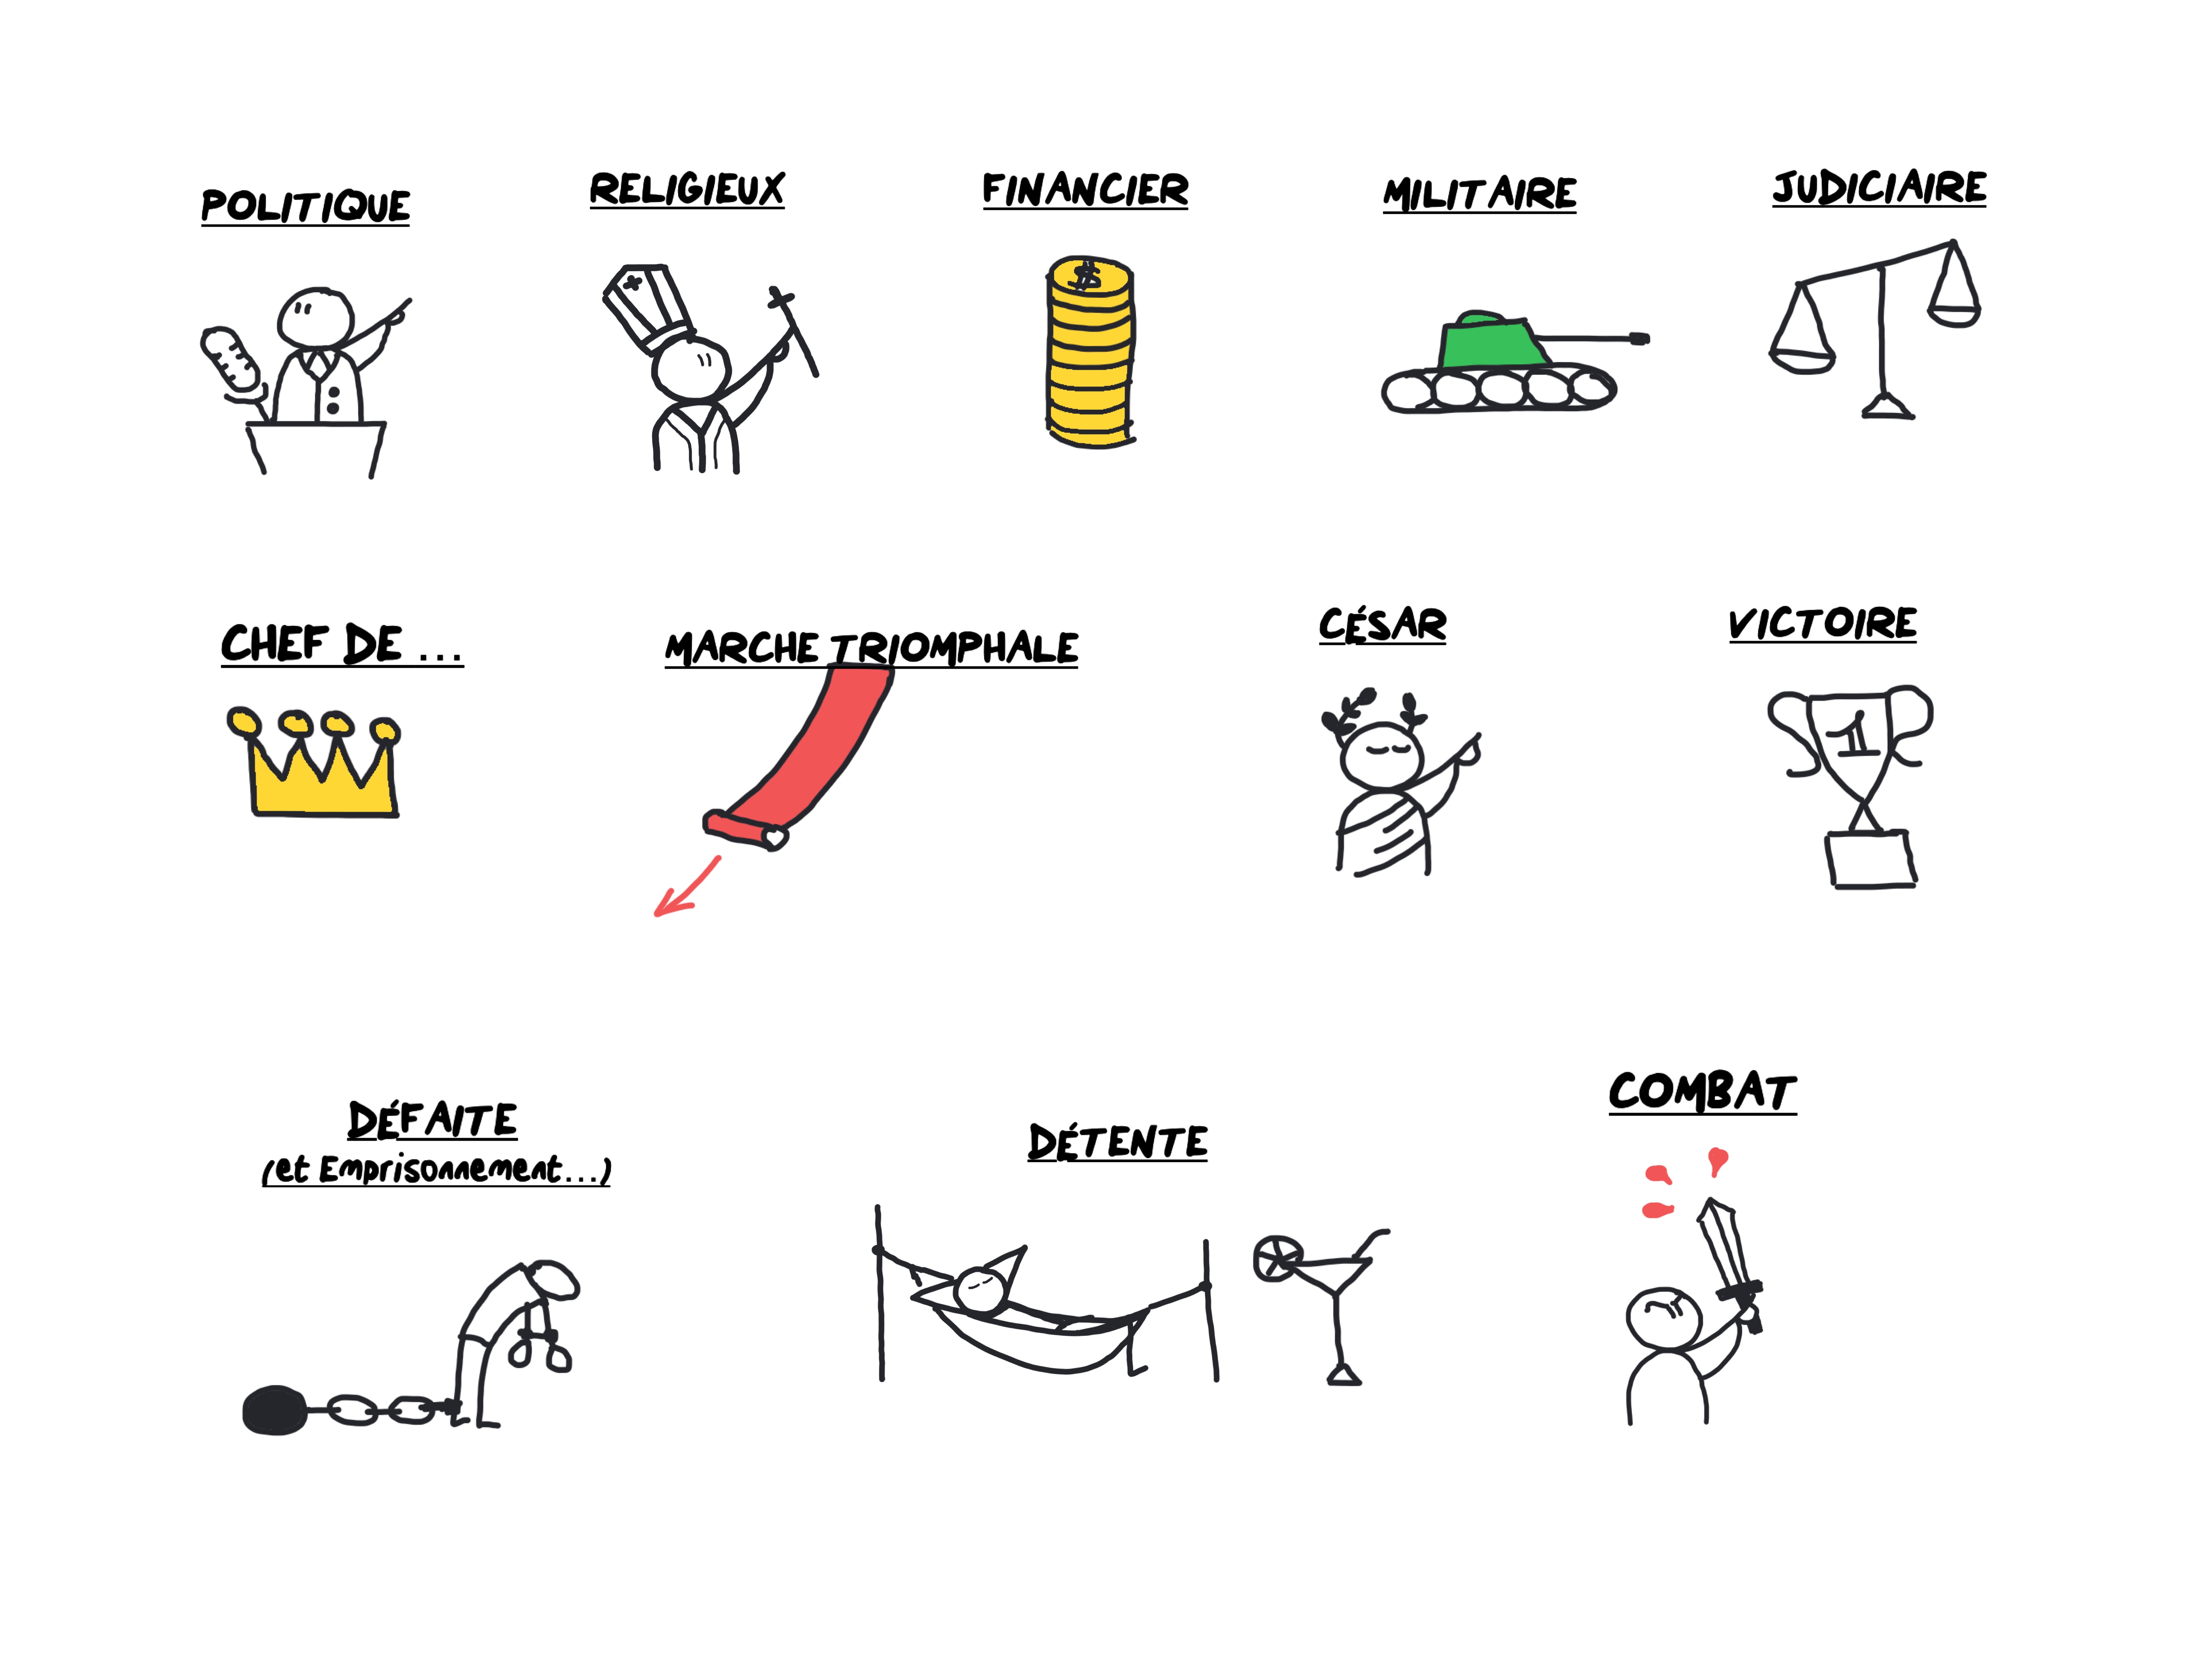 POLITIQUE
RELIGIEUX
FINANCIER
$
MILITAIRE
JUDICIAIRE
CHEF DE ...
MARCHE TRIOMPHALE
CÉSAR
VICTOIRE
1
DÉFAITE
(et Emprisonnement...)
DÉTENTE
COMBAT